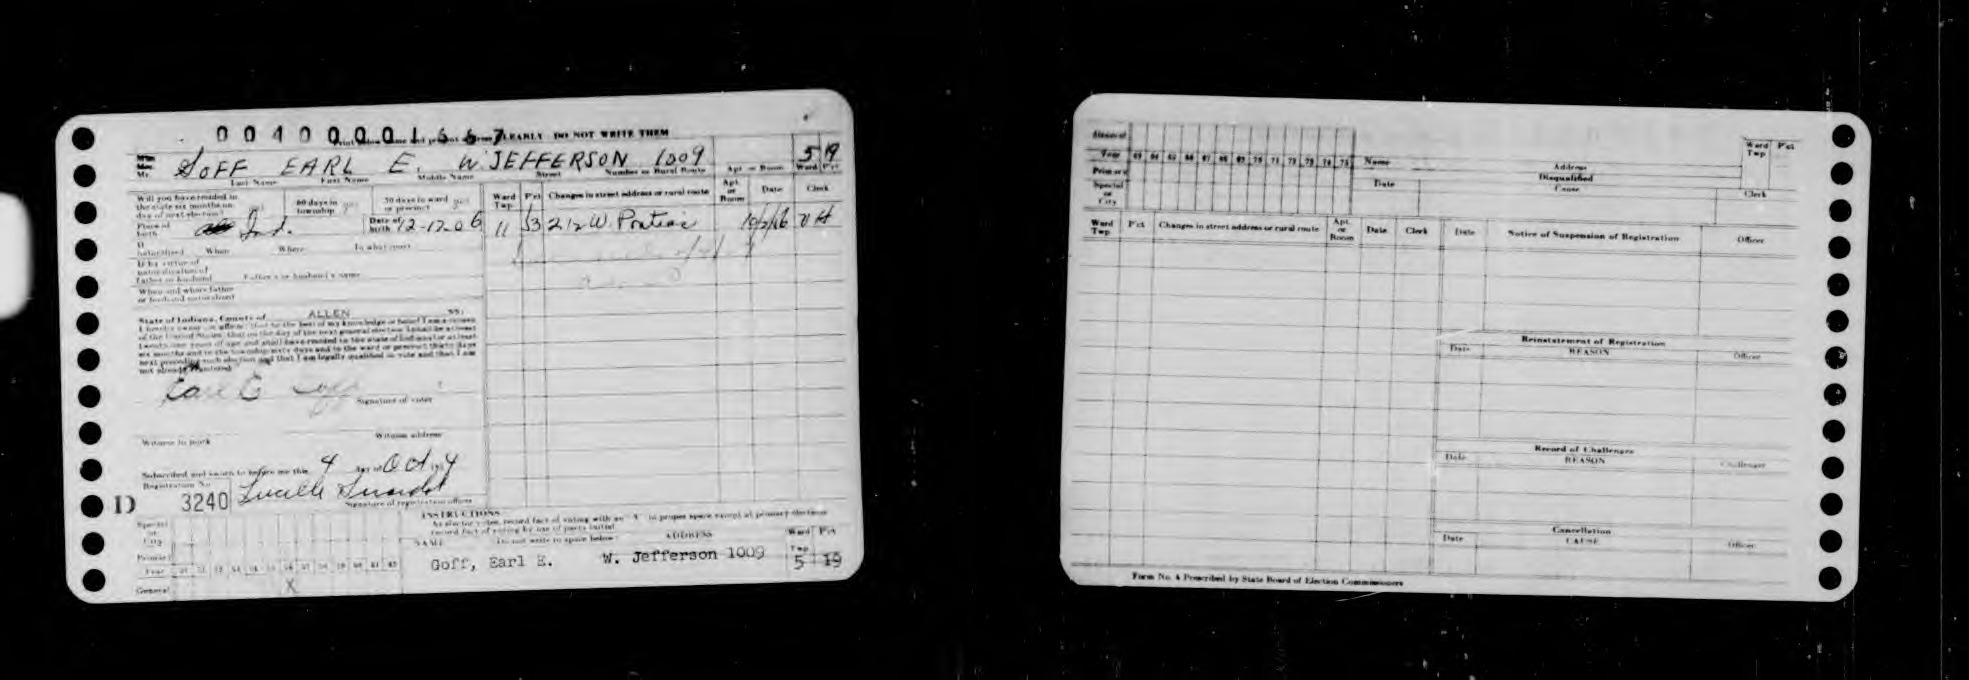 00400001667
Print below name and present address CLEARLY DO NOT WRITE THEM
Miss
Mrs.
Mr. GOFF EARL E. W. JEFFERSON 1009 5 19
Last Name First Name Middle Name Street Number or Rural Route Apt. or Room Ward Pct
Will you have resided in
the state six months on
day of next election? yes
60 days in
township yes
30 days in ward
or precinct yes
Place of
birth Ind.
Date of
birth 12-17-06
If
naturalized When Where In what court
If by virtue of
naturalization of
father or husband Father's or husband's name
When and where father
or husband naturalized
Ward
Twp Pct Changes in street address or rural route Apt.
or
Room Date Clerk
11 53 212 W. Pontiac
State of Indiana, County of ALLEN SS:
I hereby swear (or affirm) that to the best of my knowledge or belief I am a citizen
of the United States; that on the day of the next general election I shall be at least
twenty-one years of age and shall have resided in the state of Indiana for at least
six months and in the township sixty days and in the ward or precinct thirty days
next preceding such election and that I am legally qualified to vote and that I am
not already registered.
Earl E Goff
Signature of voter
Witness to mark Witness address
Subscribed and sworn to before me this 4 day of Oct 19
Registration No.
D 3240 Lucille
Signature of registration officer
INSTRUCTIONS
As elector votes, record fact of voting with an "X" in proper space except at primary elections
record fact of voting by use of party initial
NAME Do not write in space below ADDRESS Ward
Twp Pct
Goff, Earl E. W. Jefferson 1009 5 19
Special
or
City
Primary
Year
General X
General
Year 63 64 65 66 67 68 69 70 71 72 73 74 75
Primary
Special
or
City
Name Address Ward
Twp Pct
Disqualified
Date Cause Clerk
Ward
Twp Pct Changes in street address or rural route Apt.
or
Room Date Clerk
Date Notice of Suspension of Registration Officer
Reinstatement of Registration
Date REASON Officer
Record of Challenges
Date REASON Challenger
Cancellation
Date CAUSE Officer
Form No. 4 Prescribed by State Board of Election Commissioners